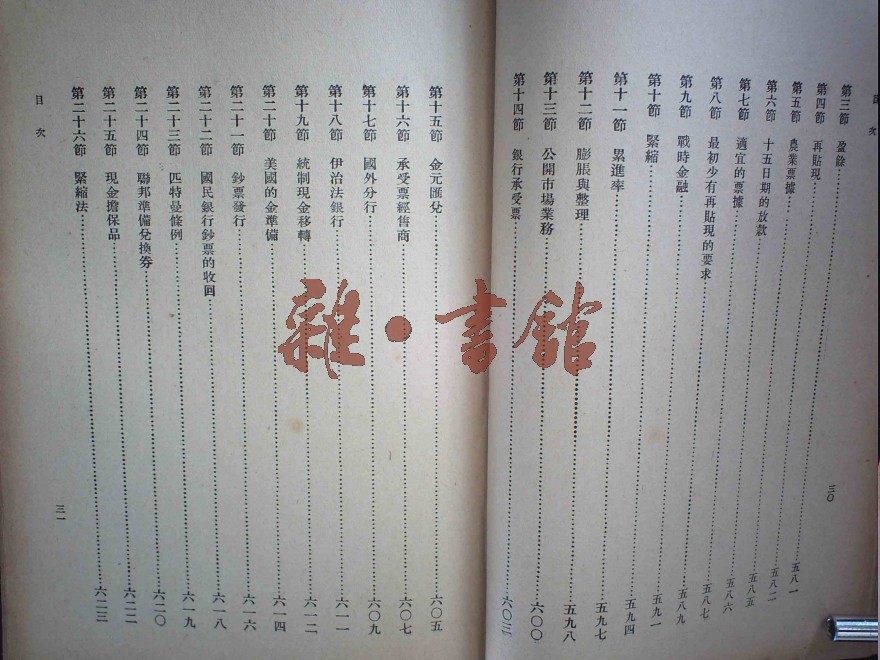 目次
第三節 盈餘
第四節 再貼現……五八一
第五節 農業票據……五八二
第六節 十五日期的放款……五八五
第七節 適宜的票據……五八六
第八節 最初少有再貼現的要求……五八七
第九節 戰時金融……五八九
第十節 緊縮……五九一
第十一節 累進率……五九四
第十二節 膨脹與整理……五九七
第十三節 公開市場業務……五九八
第十四節 銀行承受票……六〇〇
六〇三
三〇
第十五節 金元匯兌……六〇五
第十六節 承受票經售商……六〇七
第十七節 國外分行……六〇九
第十八節 伊治法銀行……六一一
第十九節 統制現金移轉……六一二
第二十節 美國的金準備……六一四
第二十一節 鈔票發行……六一六
第二十二節 國民銀行鈔票的收回……六一八
第二十三節 匹特曼條例……六一九
第二十四節 聯邦準備兌換券……六二〇
第二十五節 現金擔保品……六二二
第二十六節 緊縮法……六二三
目次
三一
雜·書館